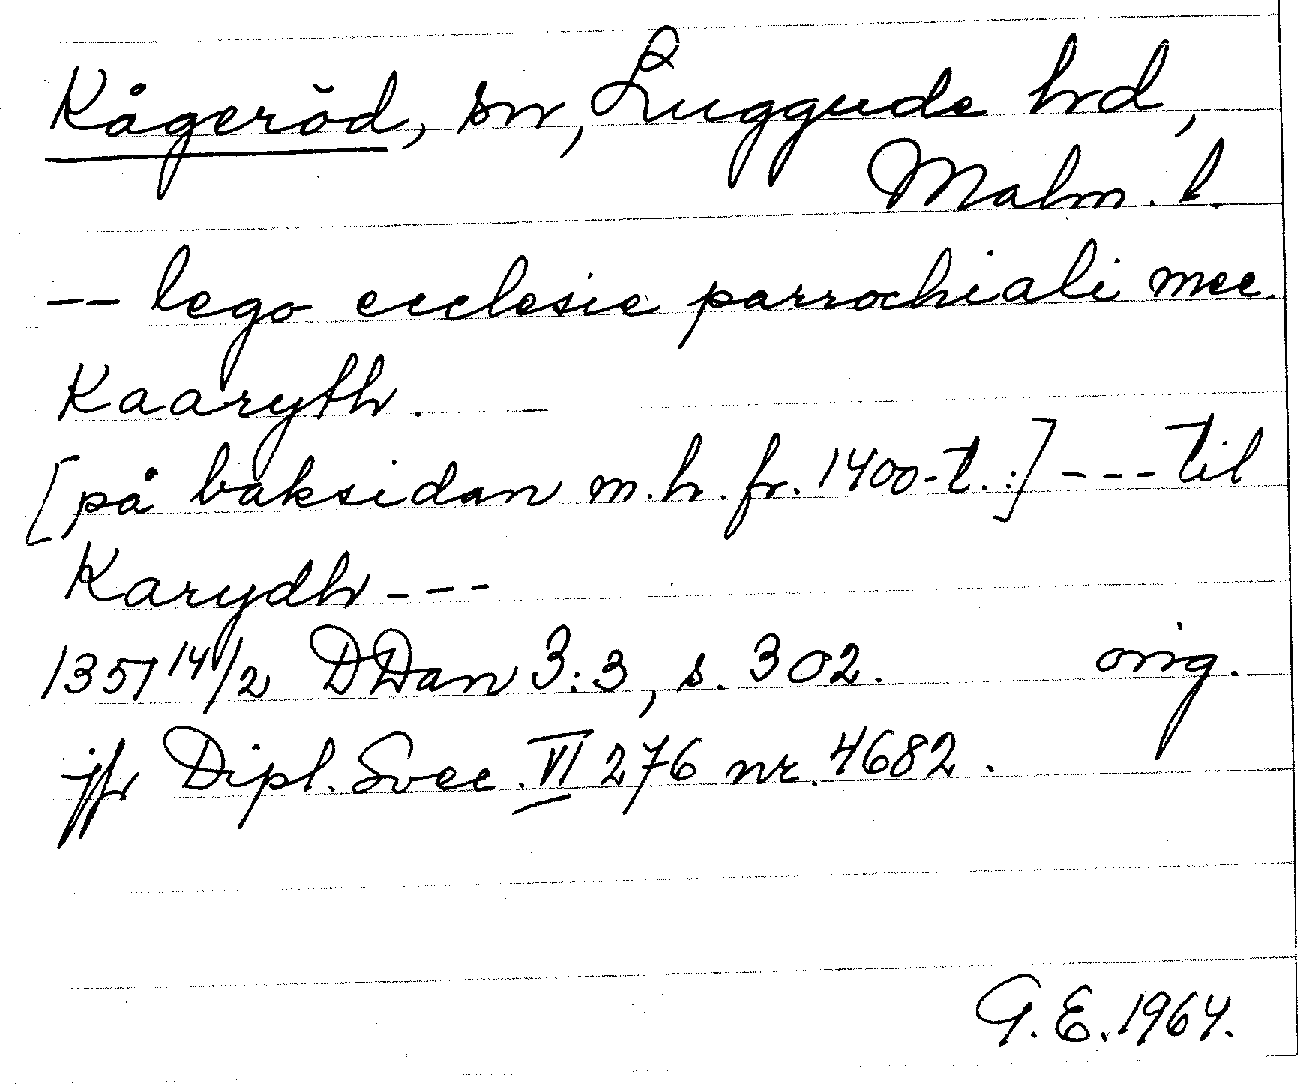 Kågeröd, sn, Luggude hrd,
Malm. l.
-- lego ecclesie parrochiali mee
Kaaryth. —
[på baksidan m. h. fr. 1400-t.:] --- til
Karydh ---
1351 14/2 DDan 3:3, s. 302. orig.
jfr Dipl. Svec. VI 276 nr. 4682.
G. E. 1964.